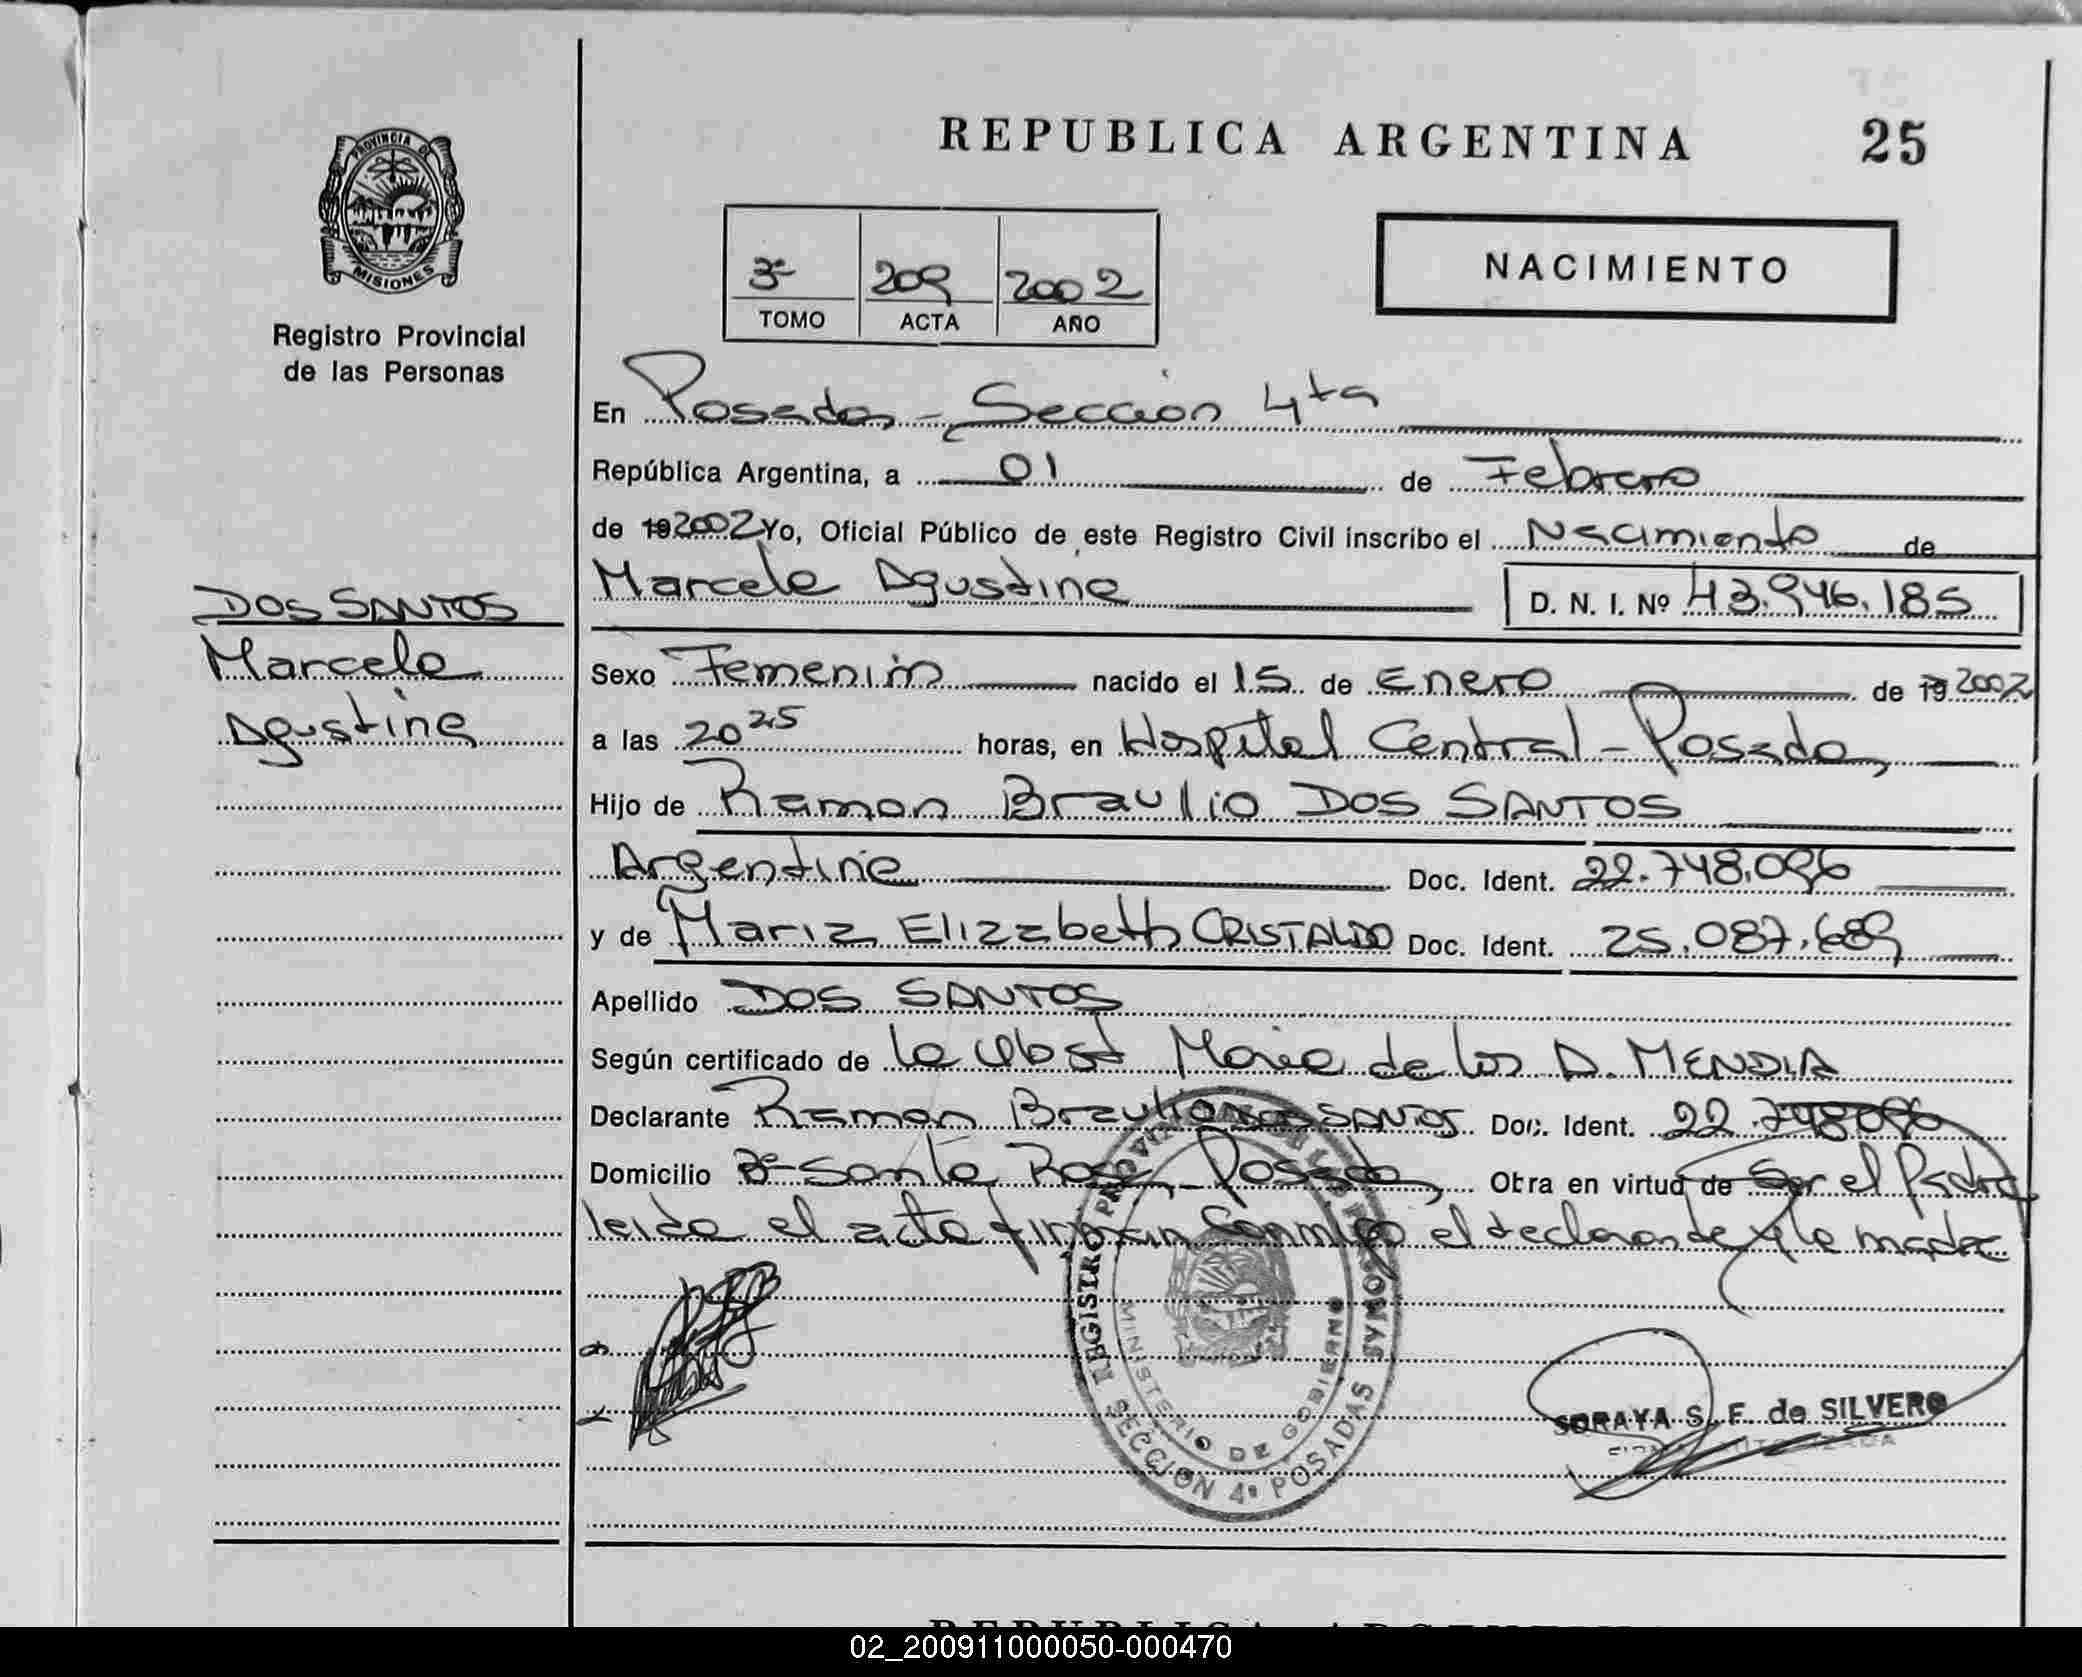 REPUBLICA ARGENTINA
25
PROVINCIA DE
MISIONES
Registro Provincial
de las Personas
3º 209 2002
TOMO ACTA AÑO
NACIMIENTO
En Posadas - Sección 4ta
República Argentina, a 01 de Febrero
de 19 2002 Yo, Oficial Público de este Registro Civil inscribo el Nacimiento de
Marcela Agustina D. N. I. Nº 43.946.185
DOS SANTOS
Marcela
Agustina
Sexo Femenino nacido el 15 de Enero de 19 2002
a las 20 25 horas, en Hospital Central - Posadas
Hijo de Ramon Braulio DOS SANTOS
Argentina Doc. Ident. 22.748.096
y de Maria Elizabeth CRISTALDO Doc. Ident. 25.087.689
Apellido DOS SANTOS
Según certificado de la Obst Maria de los A. MENDIA
Declarante Ramon Braulio DOS SANTOS Doc. Ident. 22.748096
Domicilio Bº Santa Rosa - Posadas Obra en virtud de Ser el Padre
leida el acta firman conmigo el declarante y la madre
REGISTRO PROVINCIAL DE LAS PERSONAS
MINISTERIO DE GOBIERNO
SECCION 4ª POSADAS
SORAYA S. F. de SILVERO
FIRMA AUTORIZADA
REPUBLICA ARGENTINA
02_200911000050-000470